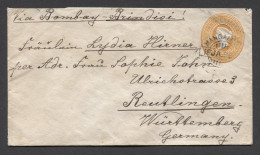 Via Bombay-Brindisi!
Fräulein Lydia Hirner
per Adr. Frau Sophie Sohn
Ulrichstrasse 3
Reutlingen.
Württemberg
Germany.